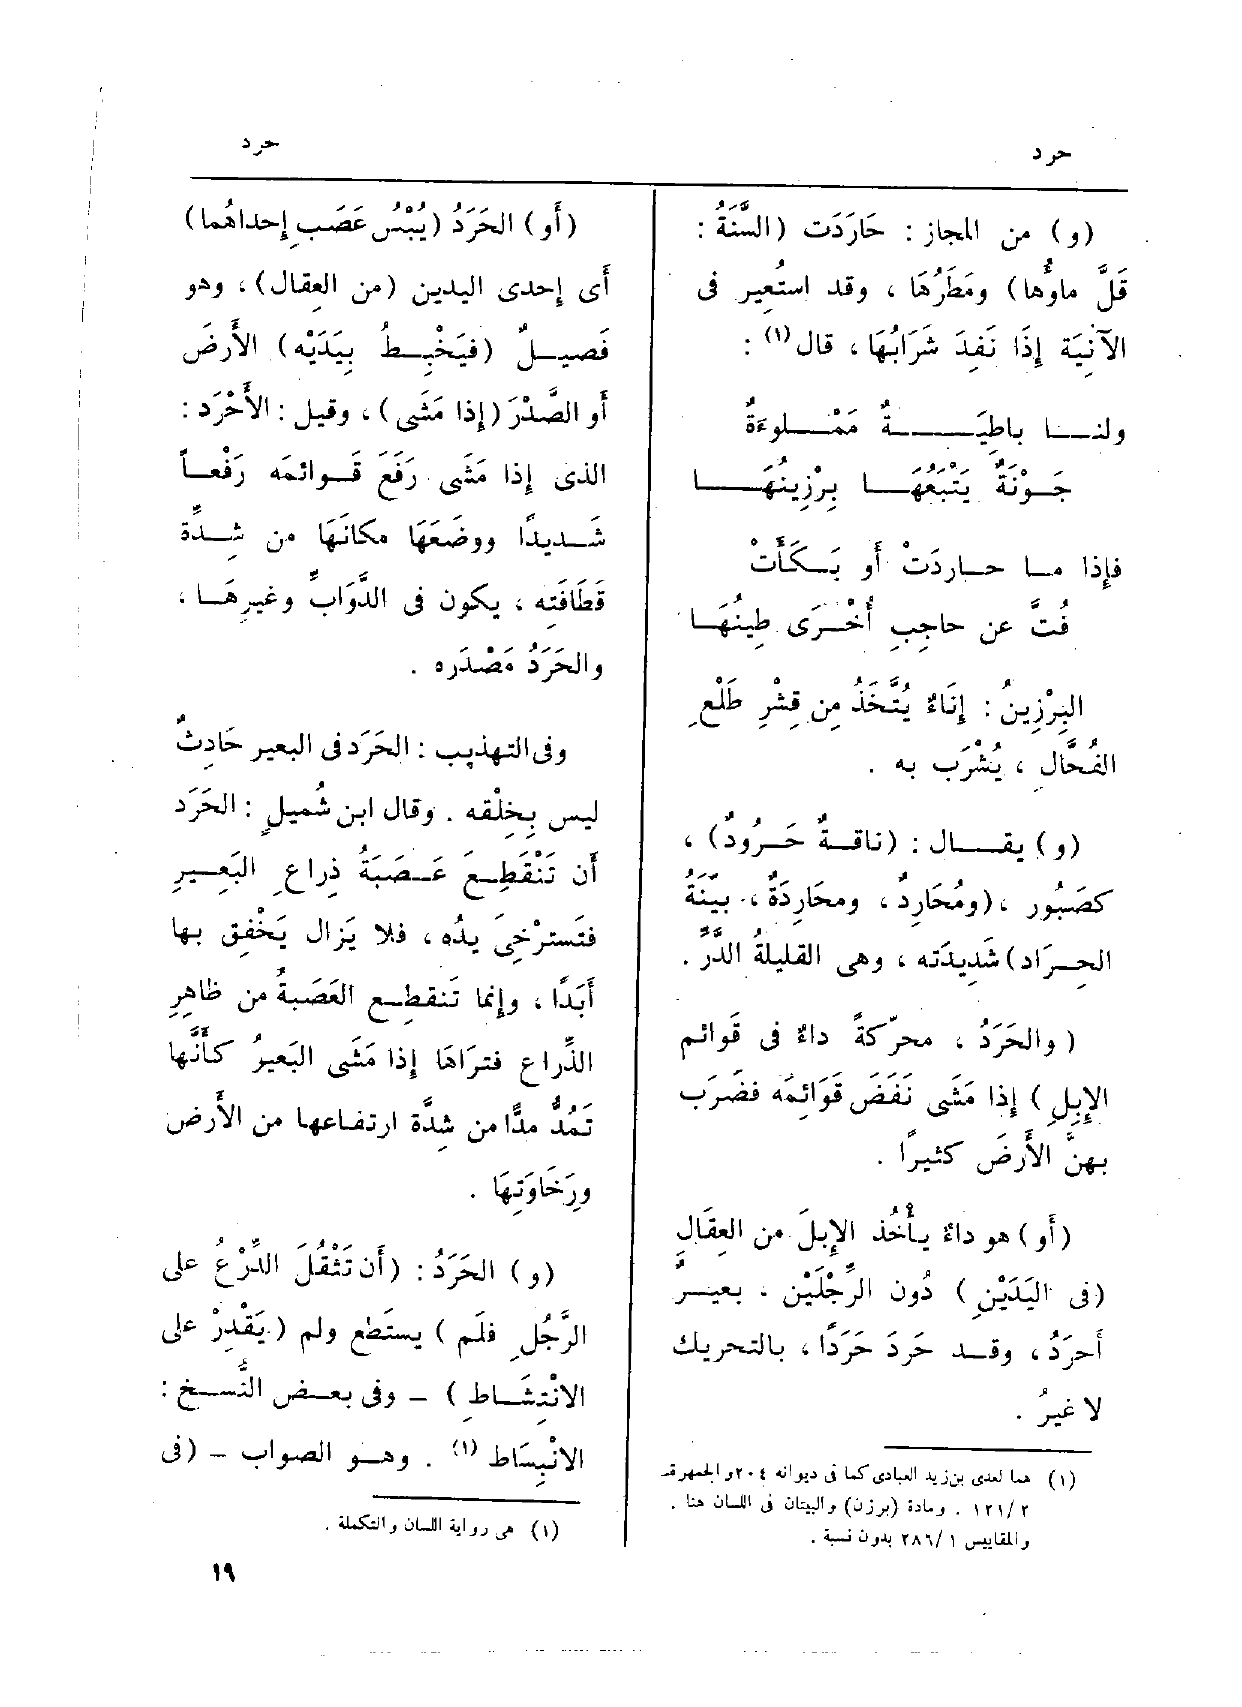 حرد
حرد
(و) من المجاز : حَارَدَت (السَّنَةُ :
قَلَّ ماوُّها) ومَطَرُهَا ، وقد استُعِير فى
الآنِيَة إِذَا نَفِدَ شَرَابُهَا ، قال (١) :
ولنـــا باطِيَــــةٌ مَمْـــلوءَةٌ
جَــوْنَةٌ يَتْبَعُهَــا بِرْزِينُهَـــا
فإِذا مــا حــاردَتْ أَو بَــكَأَتْ
فُتَّ عن حاجِبِ أُخْــرَى طِينُهَــا
البِرْزِينُ : إِنَاءٌ يُتَّخَذُ مِن قِشْرِ طَلْعِ
الفُحَّالِ ، يُشْرَب به .
(و) يقـــال : (ناقــةٌ حَــرُودٌ) ،
كصَبُور ، (ومُحَارِدٌ ، ومحَارِدَةٌ ، بَيِّنَةُ
الحِــرَاد) شَدِيدَته ، وهى القليلةُ الدَّرِّ .
(والحَرَدُ ، محرّكةً داءٌ فى قَوائم
الإِبِلِ) إِذا مَشَى نَفَضَ قَوَائمَه فضَرَب
بهنَّ الأَرضَ كثيرًا .
(أَو) هو داءٌ يأْخُذ الإِبلَ من العِقَالِ
(فى اليَدَيْنِ) دُون الرِّجْلَيْن . بعيــرٌ
أَحرَدُ ، وقــد حَرِدَ حَرَدًا ، بالتحريك
لا غيرُ .
(١) هما لعدى بن زيد العبادى كما فى ديوانه ٢٠٤ والجمهرة
٢ /١٢١ . ومادة (برزن) والبيتان فى اللسان هنا .
والمقاييس ١ /٢٨٦ بدون نسبة .
(أَو) الحَرَدُ (يُبْسُ عَصَبِ إِحداهُما)
أَى إِحدى اليدين (من العِقال) ، وهو
فَصِيــلٌ (فيَخْبِــطُ بِيَدَيْه) الأَرضَ
أَو الصَّدْرَ (إِذا مَشَى) ، وقيل : الأَحْرَد :
الذى إِذا مَشَى رَفَعَ قَــوائمَه رَفْعــاً
شَــديدًا ووضَعَهَا مكانَهَا من شِــدَّة
قَطَافَتِه ، يكون فى الدَّوَابِّ وغيرِهَــا ،
والحَرَدُ مَصْدَره .
وفى التهذيب : الحَرَد فى البعير حَادِثٌ
ليس بِخِلْقه . وقال ابن شُميلٍ : الحَرَد
أَن تَنْقَطِــعَ عَــصَبَةُ ذِراعِ البَعِــيرِ
فتَسترْخِىَ يدُه ، فلا يَزال يَخْفِق بها
أَبَدًا ، وإِنما تَنقطِــع العَصَبةُ من ظاهِرِ
الذِّراع فترَاهَا إِذا مَشَى البَعيرُ كأَنَّها
تَمُدُّ مدًّا من شِدَّة ارتفــاعها من الأَرض
ورَخَاوَتِهَا .
(و) الحَرَدُ : (أَن تَثْقُلَ الدِّرْعُ على
الرَّجُلِ فلَم) يستَطع ولم (يَقْدِرْ على
الانْتِشَــاط) – وفى بعــض النُّســخ :
الانْبِسَاط (١) . وهــو الصواب – (فى
(١) هى رواية اللسان والتكملة .
١٩